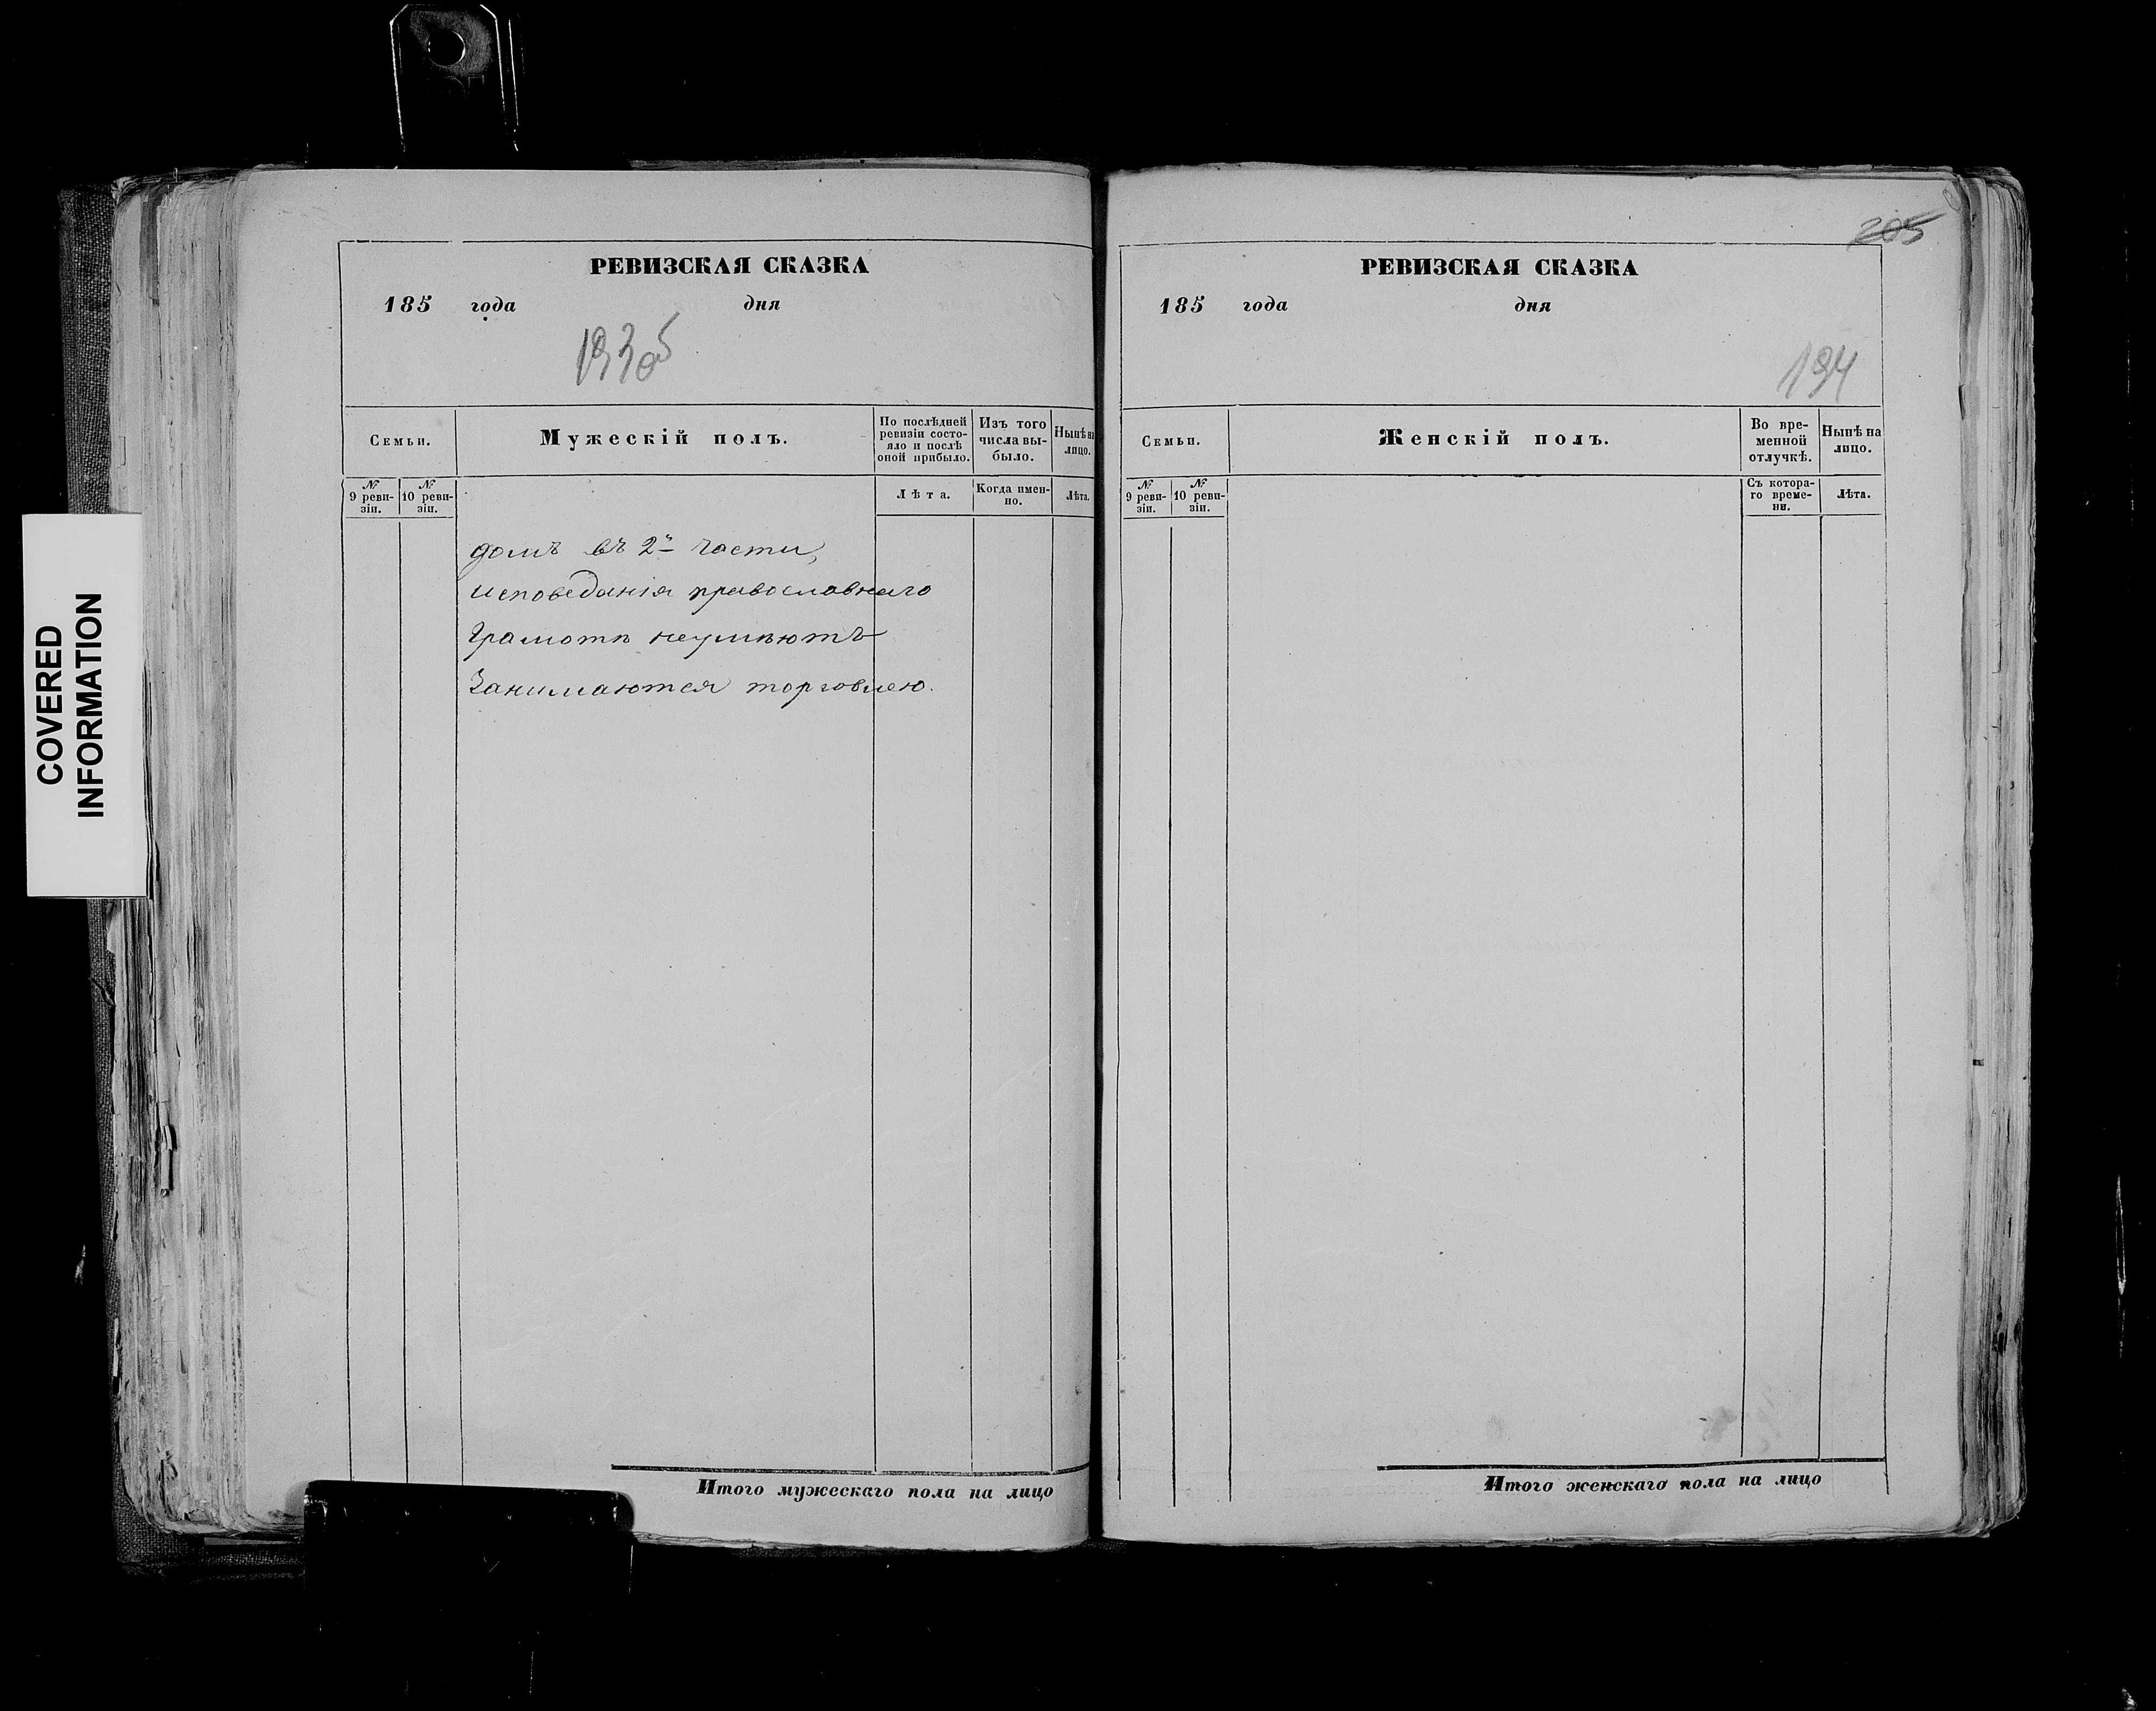 COVERED
INFORMATION
РЕВИЗСКАЯ СКАЗКА
185 года дня
193об
Семьи.
Мужескій полъ.
По послѣдней
ревизіи состо-
яло и послѣ
оной прибыло.
Изъ того
числа вы-
было.
Нынѣ на
лицо.
№
9 реви-
зіи.
№
10 реви-
зіи.
Лѣта.
Когда имен-
но.
Лѣта.
домъ въ 2й части,
исповеданія православнаго
Грамотѣ неумѣютъ
Занимаются торговлею.
Итого мужескаго пола на лицо
205
РЕВИЗСКАЯ СКАЗКА
185 года дня
194
Семьи.
Женскій полъ.
Во вре-
менной
отлучкѣ.
Нынѣ на
лицо.
№
9 реви-
зіи.
№
10 реви-
зіи.
Съ котора-
го време-
ни.
Лѣта.
Итого женскаго пола на лицо